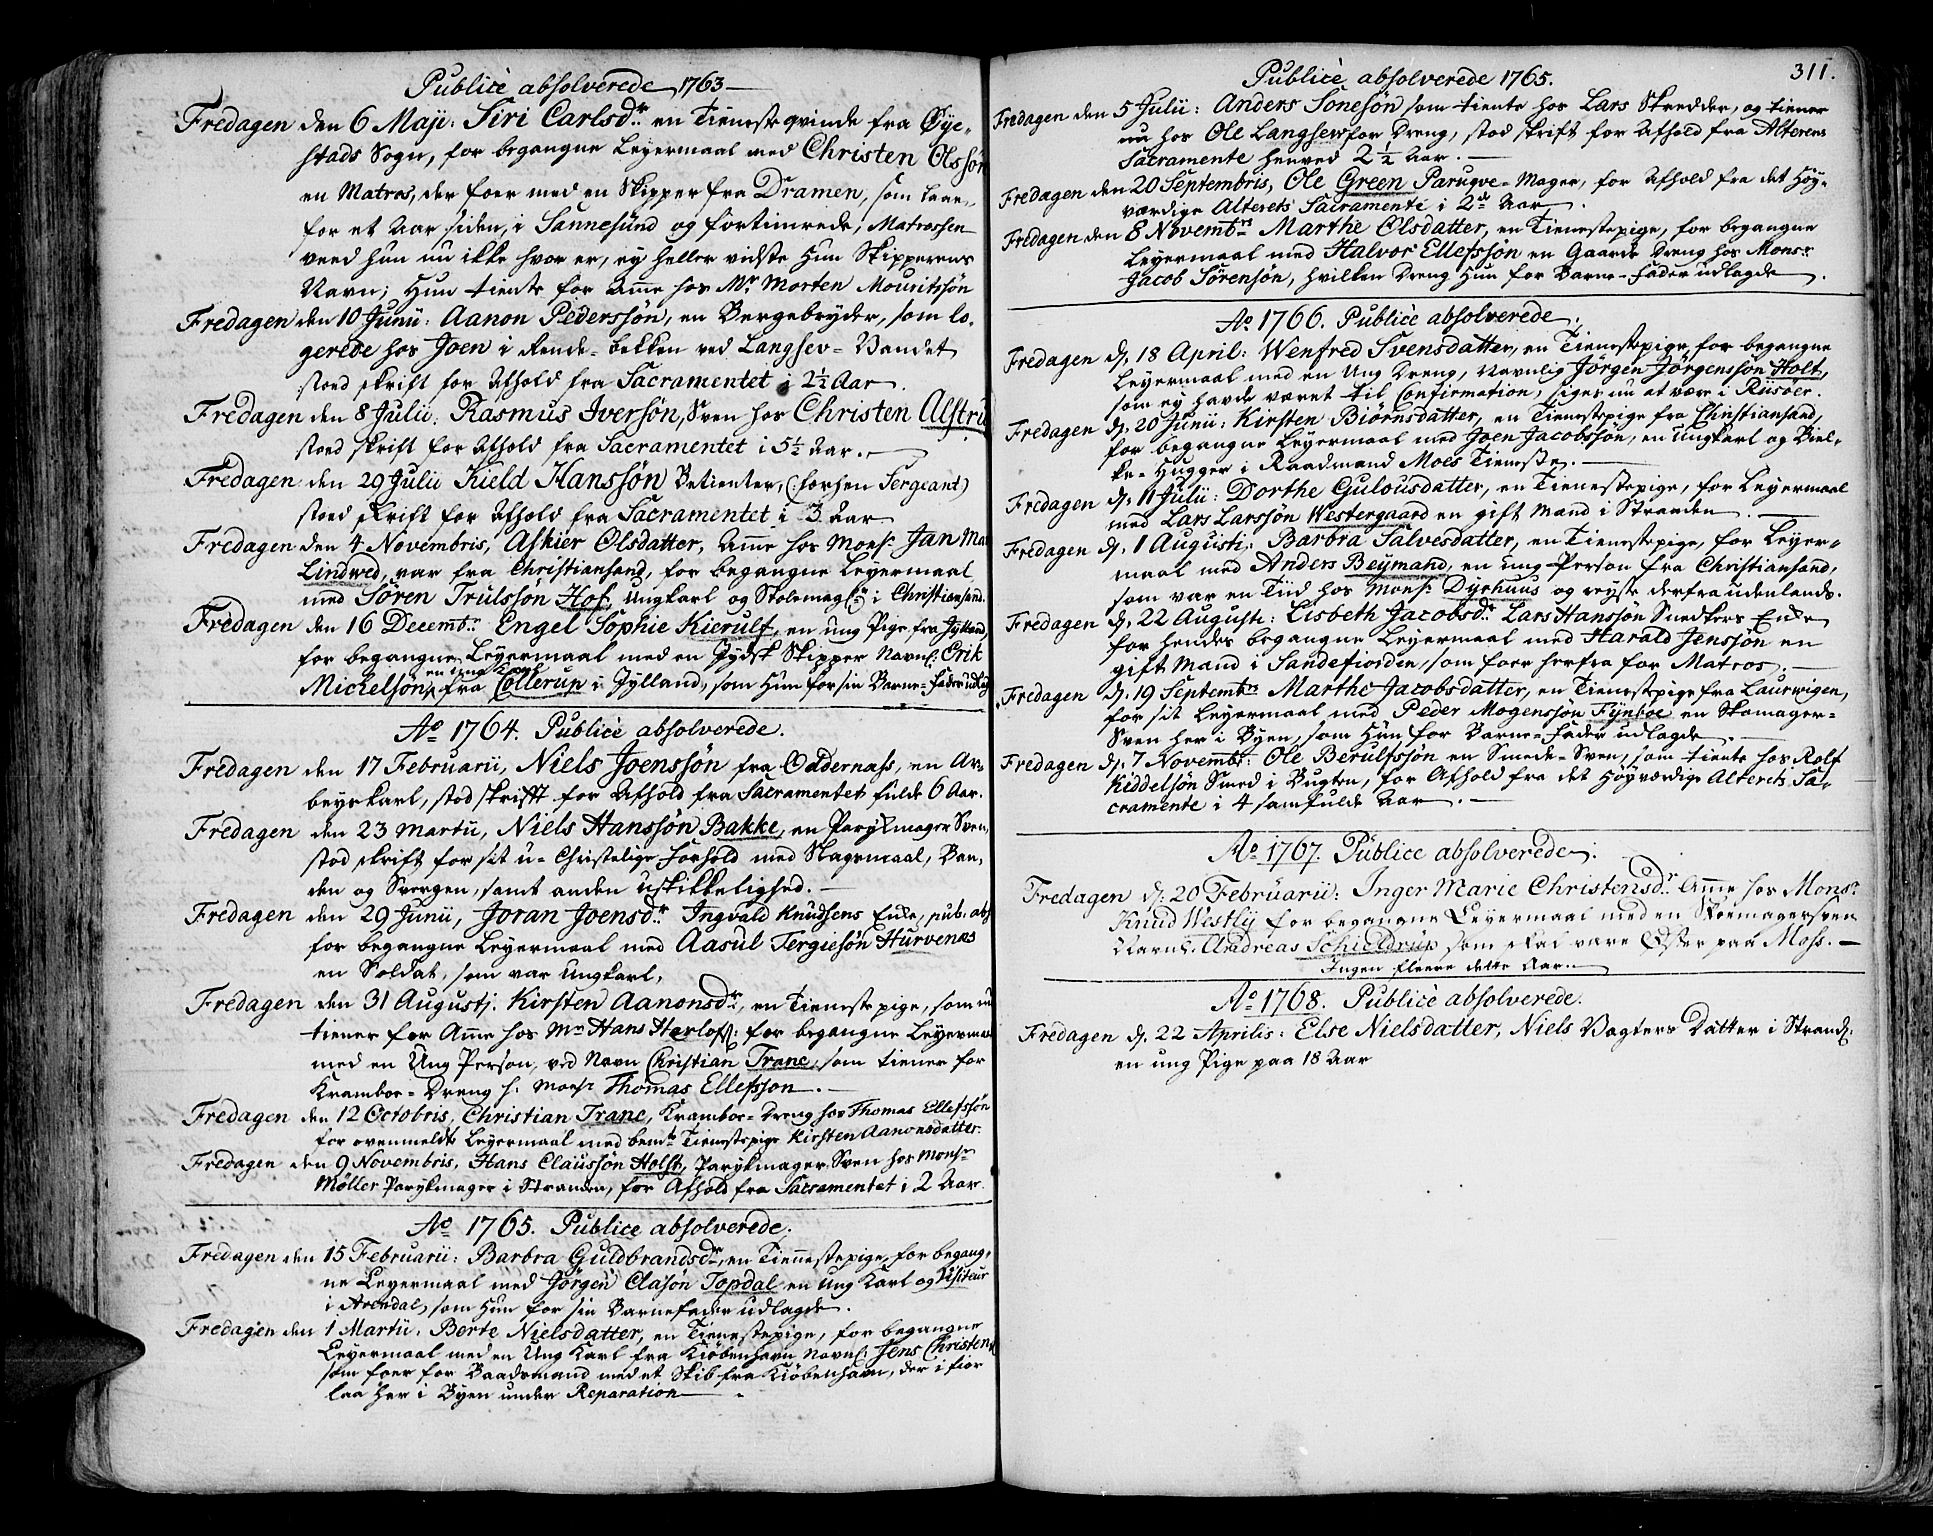 Publicè absolverede 1763
Fredagen den 6 Maji: Siri Carlsdr en Tienesteqvinde fra Øye-
stads Sogn, for begangne Leyermaal med Christen Olssön
en Matros, der foer med en Skipper fra Dramen, som laae,
for et Aar siden, i Sannesund og fortimrede, Matrossen
veed hun nu ikke hvor er, ey heller vidste Hun Skipperens
Navn; Hun tiente for Amme hos Mr Morten Mouritssön
Fredagen den 10 Junii: Aanon Pederssön, en Bergebryder, som lo-
gerede hos Joen i Rende-bekken ved Langsev-Vandet
stoed skrift for Afhold fra Sacramentet i 2½ Aar.
Fredagen den 8 Julii: Rasmus Iversön, Sven hos Christen Alstru
stoed skrift for Afhold fra Sacramentet i 5½ Aar.
Fredagen den 29 Julii Kield Hanssön Betienter, (: forhen Sergeant)
stoed skrift for Afhold fra Sacramentet i 3 Aar
Fredagen den 4 Novembris, Askier Olsdatter, Amme hos Monsr Jan Ma
Lindwed, var fra Christiansand, for begangne Leyermaal
med Sören Trulssön Hof, Ungkarl og Stolemagr i Christiansand.
Fredagen den 16 Decembr Engel Sophie Kierulf, en ung Pige fra Jylland,
for begangne Leyermaal med en Jydsk Skipper Navnl: Erik
Michelsön, en ung Karl fra Collerup i Jylland, som Hun for sin Barne-fader udlag
Ao 1764. Publicè absolverede.
Fredagen den 17 Februarii, Niels Joenssön fra Oddernæss, en Ar-
beyskarl, stod skrift for Afhold fra Sacramentet fulde 6 Aar.
Fredagen den 23 Martii, Niels Hanssön Bakke, en Parykmager Sven,
stod skrift for sit u-Christelige Forhold med Slagsmaal, Ban-
den og Svergen, samt anden uskikkelighed.
Fredagen den 29 Junii, Joran Joensdr Ingvald Knudsens Enke, pub: abs
for begangne Leyermaal med Aasul Tergiesön Hurvenes
en Soldat, som var Ungkarl,
Fredagen den 31 Augustj. Kirsten Aanonsdr, en Tienestepige, som nu
tiener for Amme hos Mr Hans Herlofs: for begangne Leyermaa
med en Ung Person, ved Navn Christian Trane, som tiener for
Kramboe-Dreng h. Monsr Thomas Ellefsson.
Fredagen den 12 Octobris, Christian Trane, Kramboe-Dreng hos Thomas Ellefssön
for ovenmeldte Leyermaal med bemte Tienestepige Kirsten Aanonsdatter.
Fredagen den 9 Novembris, Hans Claussön Holst, Parykmager Sven hos Monsr
Møller Parykmager i Stranden, for Afhold fra Sacramentet i 2 Aar.
Ao 1765. Publice absolverede.
Fredagen den 15 Februarii: Barbra Guldbrandsdr, en Tienestepige, for begang-
ne Leyermaal med Jörgen Clasön Topdal en Ung Karl og Visiteur
i Arendal, som Hun for sin Barnefader udlagde.
Fredagen den 1 Martii. Berte Nielsdatter, en Tienestepige, for begangne
Leyermaal med en Ung Karl fra Kiöbenhavn Navnl: Jens Christens
som foer for Baadsmand med et Skib fra Kiöbenhavn, der i fior
laa her i Byen under Reparation
311.
Publicè absolverede 1765.
Fredagen den 5 Julii: Anders Sönesön som tiente hos Lars Skredder, og tiener
nu hos Ole Langsew for Dreng, stod skrift for Afhold fra Alterens
Sacramente henved 2½ Aar.
Fredagen den 20 Septembris, Ole Green Paruqve-Mager, for Afhold fra det Høy-
værdige Alterets Sacramente i 2de Aar.
Fredagen den 8 Novembrs Marthe Olsdatter, en Tienestepige, for begangne
Leyermaal med Halvor Ellefssön en Gaards Dreng hos Monsr
Jacob Sörensön, hvilken Dreng Hun for Barne-Fader udlagde.
Ao 1766. Publicè absolverede.
Fredagen d. 18 April: Wenfred Svensdatter, en Tienestepige, for begangne
Leyermaal med en Ung Dreng, Navnlig Jörgen Jörgenssön Holt,
som ey havde været til Confirmation, siges nu at være i Riisöer.
Fredagen d. 20 Junii: Kirsten Biörnsdatter, en Tienestepige fra Christiansand,
for begangne Leyermaal med Joen Jacobssön, en ungkarl og Biel-
ke-Hugger i Raadmand Moes Tieneste.
Fredagen d. 11 Julii: Dorthe Gulousdatter, en Tienestepige, for Leyermaal
med Lars Larssön Westergaard en gift Mand i Stranden.
Fredagen d. 1 Augusti: Barbra Salvesdatter, en Tienestepige, for Leyer-
maal med Anders Beymand, en ung Person fra Christiansand,
som var en Tiid hos Monsr Dyrhuus og reyste derfra udenlands.
Fredagen d. 22 Augusti: Lisbeth Jacobsdr Lars Hanssön Snedkers Enke
for hendes begangne Leyermaal med Harald Jenssön en
gift Mand i Sandefiorden, som foer herfra for Matros.
Fredagen d. 19 Septembrs Marthe Jacobsdatter, en Tienestepige fra Laurwigen,
for sit Leyermaal med Peder Mogenssön Fynboe en Skomager-
Sven her i Byen, som Hun for Barne-Fader udlagde.
Fredagen d. 7 Novembr: Ole Berulfssön en Smede-Sven, som tiente hos Rolf
Kiddelsön Smed i Bugten, for Afhold fra det Høyværdige Alterets Sa-
cramente i 4 samfulde Aar.
Ao 1767. Publice absolverede.
Fredagen d. 20 Februarii: Inger Marie Christensdr Amme hos Monsr
Knud Westlÿ for begangne Leyermaal med en Skoemagersven
Navnl. Andreas Schieldrup som skal være Efter paa Moss.
Ingen fleere dette Aar.
Ao 1768. Publicè absolverede.
Fredagen d. 22 Aprilis: Else Nielsdatter, Niels Vagters Datter i Strand:
en ung Pige paa 18 Aar